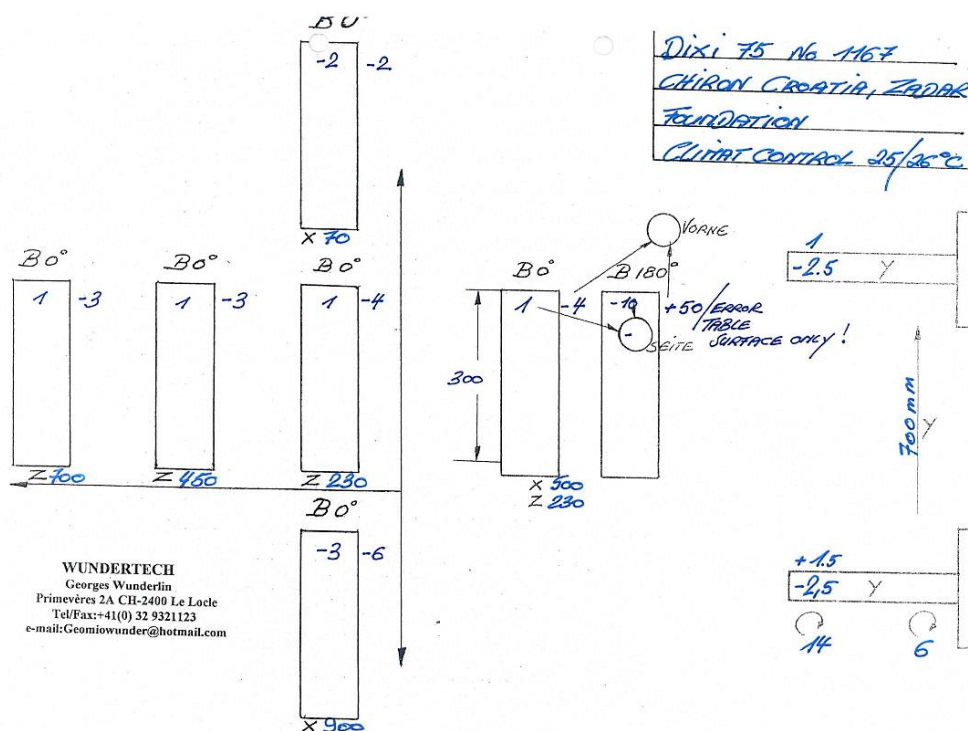 B 0°
-2 -2
X 70
DIXI 75 No 1167
CHIRON CROATIA, ZADAR
FOUNDATION
CLIMAT CONTROL 25/26°C
B 0° B 0° B 0°
1 -3 1 -3 1 -4
Z 700 Z 450 Z 230
B 0° B 180°
VORNE
1 -4 -10 +50/ERROR
TABLE
SURFACE ONLY!
-
SEITE
300
X 500
Z 230
1
-2.5 Y
700 mm
Y
+1.5
-2,5 Y
14 6
B 0°
-3 -6
X 900
WUNDERTECH
Georges Wunderlin
Primevères 2A CH-2400 Le Locle
Tel/Fax:+41(0) 32 9321123
e-mail:Geomiowunder@hotmail.com